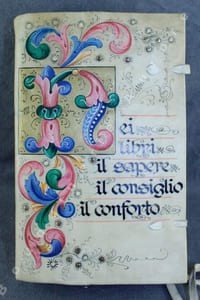 Nei
libri
il sapere
il consiglio
il conforto